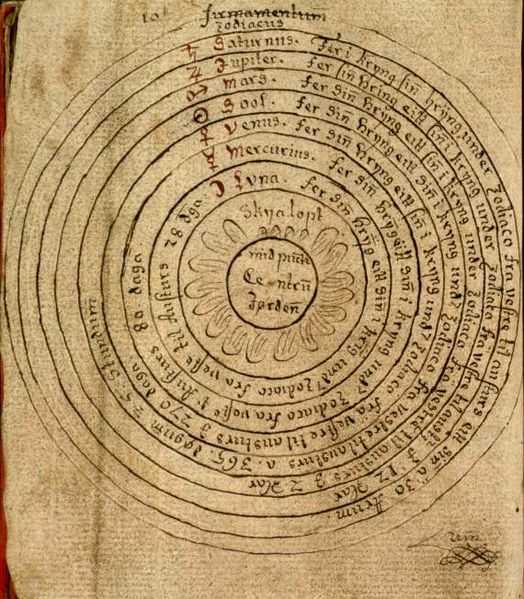 10
firmamentum
Zodiacus
♄ Saturnus. Fer i kryng sin hryng under Zodiaco fra vestre til austurs eitt sin a 30 Arum.
♃ Jupiter. Fer sin hring eitt sin i kryng under Zodiaco fra vestre til austurs 12 Aar
♂ Mars. fer sin hryng eitt sin i kryng under Zodiaco fra vestre til austurs 2 Aar
☉ Sool. fer sin kryng eitt sin i kryng under Zodiaco fra vestre til austurs a. 365. dagum Stundum
♀ Venus. fer sin kryng eitt sin i kryng und Zodiaco fra vestre til austurs 270 daga.
☿ Mercurius. fer sin kryng eitt sin i kryng und Zodiaco fra vestre Austurs 80 daga
☽ Luna. fer sin kryng eitt sin i kryng und Zodiaco fra vestre til austurs 28 dga
Skyalopt
mid punkt
Centru
Jørden
um